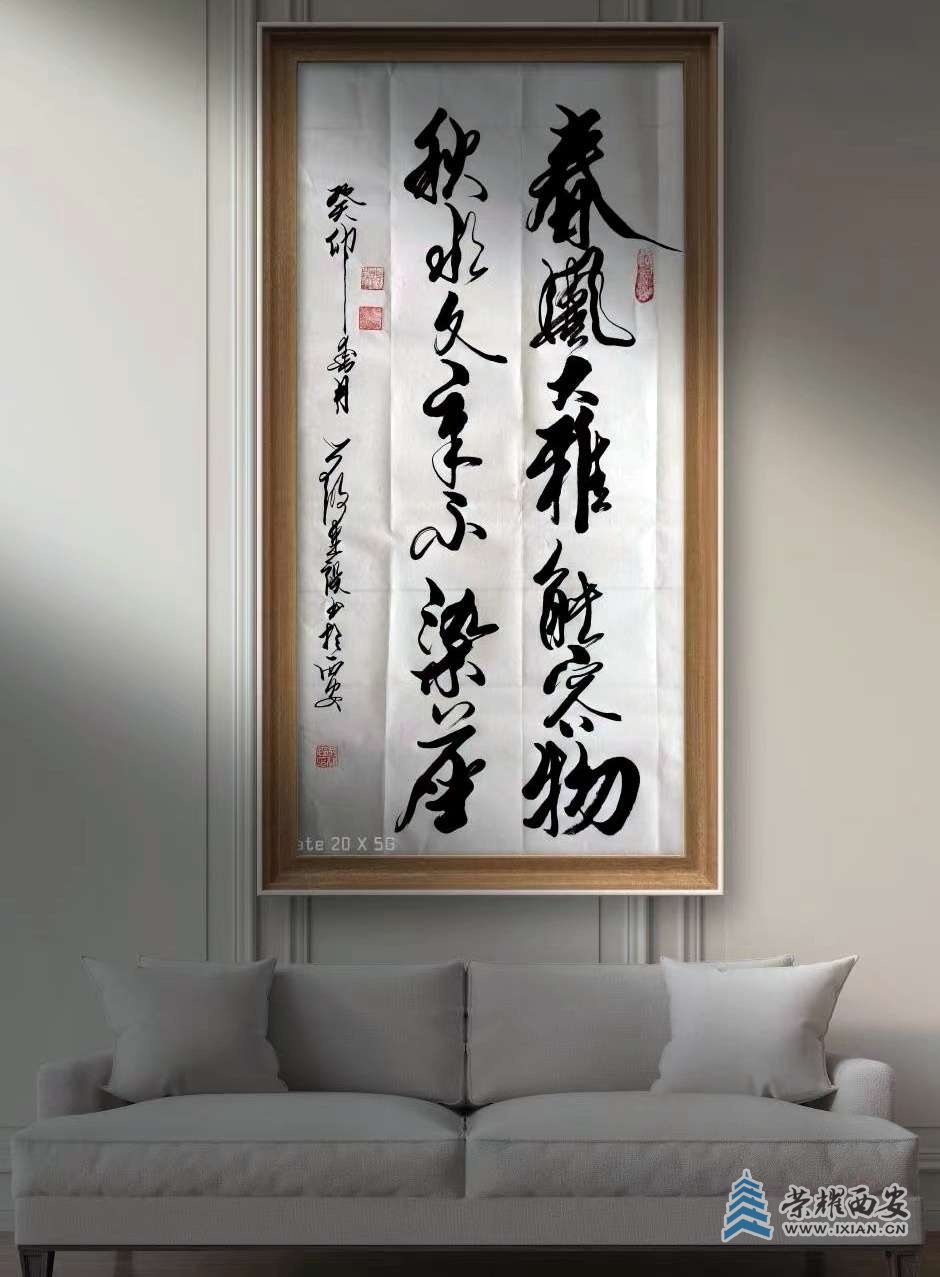 春風大雅能容物
秋水文章不染塵
癸卯 月 建設书於西安
ate 20 X 5G
荣耀西安
WWW.IXIAN.CN